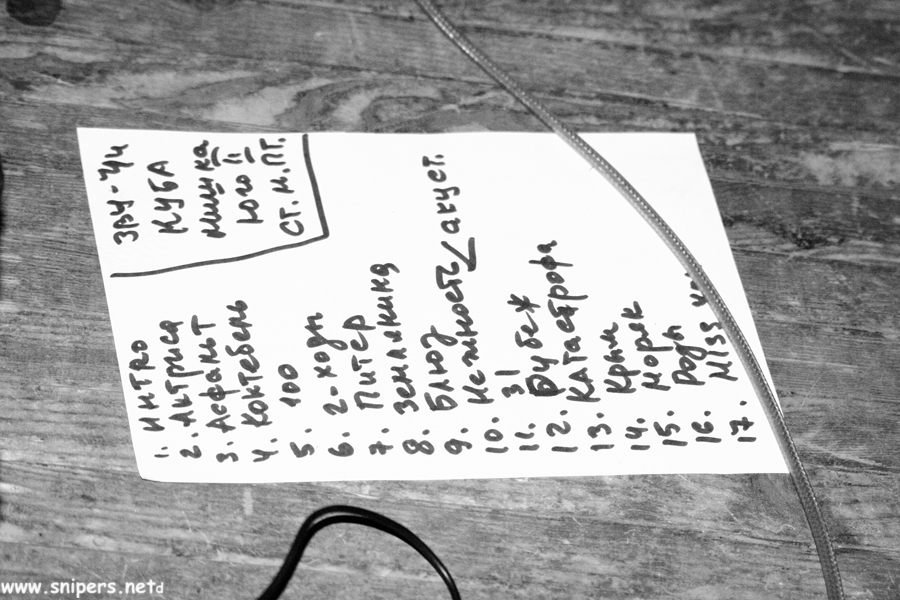 ЗВУ-ЧИ
КУБА
мишка
Ст. М. ПТ.
1. ИНТRO
2. Актриса
3. Асфальт
4. Коктебель
5. 100
6. 2-ходы
7. Питер
8. Земляника
9. Блюз
10. Нежность акуст.
11. 31
12. Рубеж
13. Катастрофа
14. Крым
15. Моряк
16. Роды
17. Miss
www.snipers.net